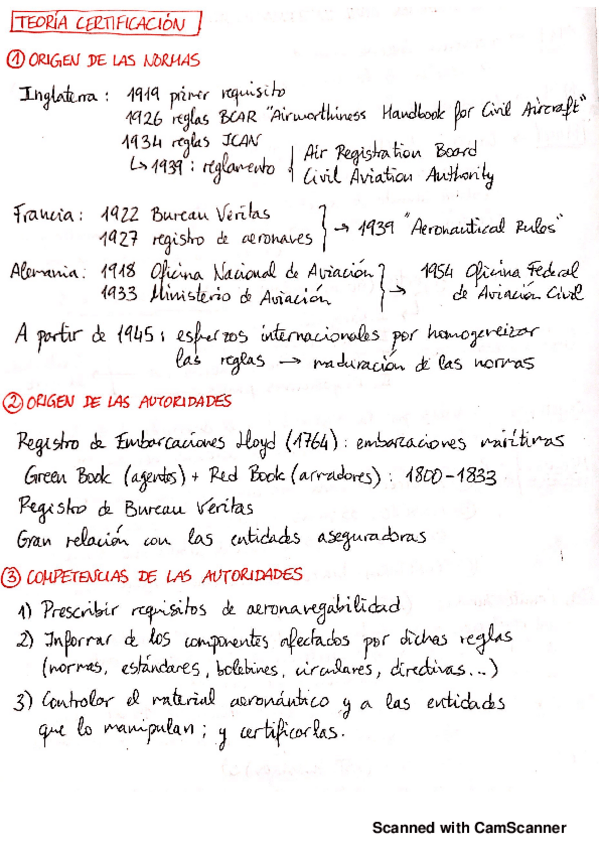 TEORÍA CERTIFICACIÓN
① ORIGEN DE LAS NORMAS
Inglaterra: 1919 primer requisito
1926 reglas BCAR "Airworthiness Handbook for Civil Aircraft"
1934 reglas ICAN
↳ 1939: reglamento Air Registration Board
Civil Aviation Authority
Francia: 1922 Bureau Veritas
1927 registro de aeronaves → 1939 "Aeronautical Rules"
Alemania: 1918 Oficina Nacional de Aviación → 1954 Oficina Federal
1933 Ministerio de Aviación de Aviación Civil
A partir de 1945: esfuerzos internacionales por homogeneizar
las reglas → maduración de las normas
② ORIGEN DE LAS AUTORIDADES
Registro de Embarcaciones Lloyd (1764): embarcaciones marítimas
Green Book (agentes) + Red Book (armadores): 1800-1833
Registro de Bureau Veritas
Gran relación con las entidades aseguradoras
③ COMPETENCIAS DE LAS AUTORIDADES
1) Prescribir requisitos de aeronavegabilidad
2) Informar de los componentes afectados por dichas reglas
(normas, estándares, boletines, circulares, directivas...)
3) Controlar el material aeronáutico y a las entidades
que lo manipulan; y certificarlas.
Scanned with CamScanner